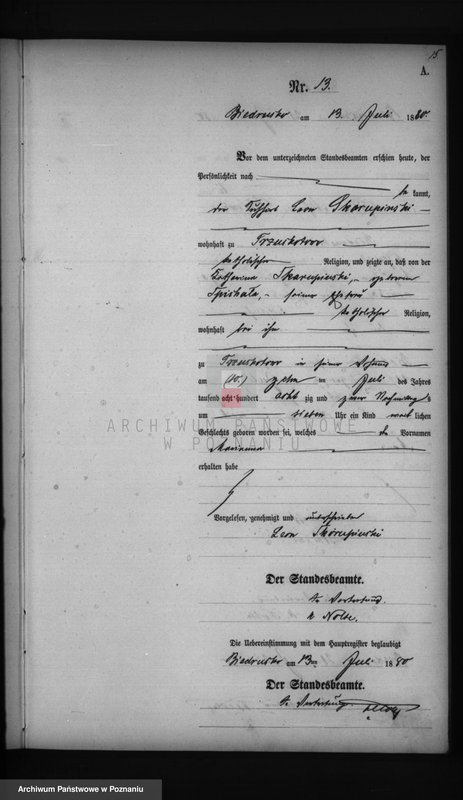 15
A.
Nr. 13.
Biedrusko am 13. Juli 1880.
Vor dem unterzeichneten Standesbeamten erschien heute, der
Persönlichkeit nach
be kannt,
der Leon Skorupinski
wohnhaft zu Trzuskotowo
katholischer Religion, und zeigte an, daß von der
Katharina Skorupinski, geborenen
seiner Ehefrau
katholischer Religion,
wohnhaft bei ihm
zu Trzuskotowo in seiner Wohnung
am (10.) zehn ten Juli des Jahres
tausend acht hundert acht zig und Nachmittags
um sieben Uhr ein Kind weib lichen
Geschlechts geboren worden sei, welches den Vornamen
Marianna
erhalten habe
Vorgelesen, genehmigt und unterschrieben
Leon Skorupinski
Der Standesbeamte.
In Vertretung.
Nolte.
Die Uebereinstimmung mit dem Hauptregister beglaubigt
Biedrusko am 13ten Juli 1880
Der Standesbeamte.
In Vertretung
Nolte
ARCHIWUM PAŃSTWOWE
W POZNANIU
Archiwum Państwowe w Poznaniu